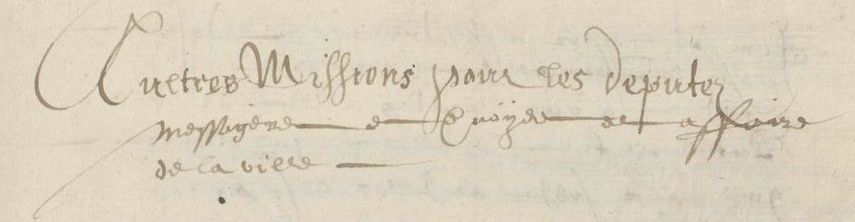 Aultres Missions pour les deputez
messagers et Envoyés es affaire
de la ville